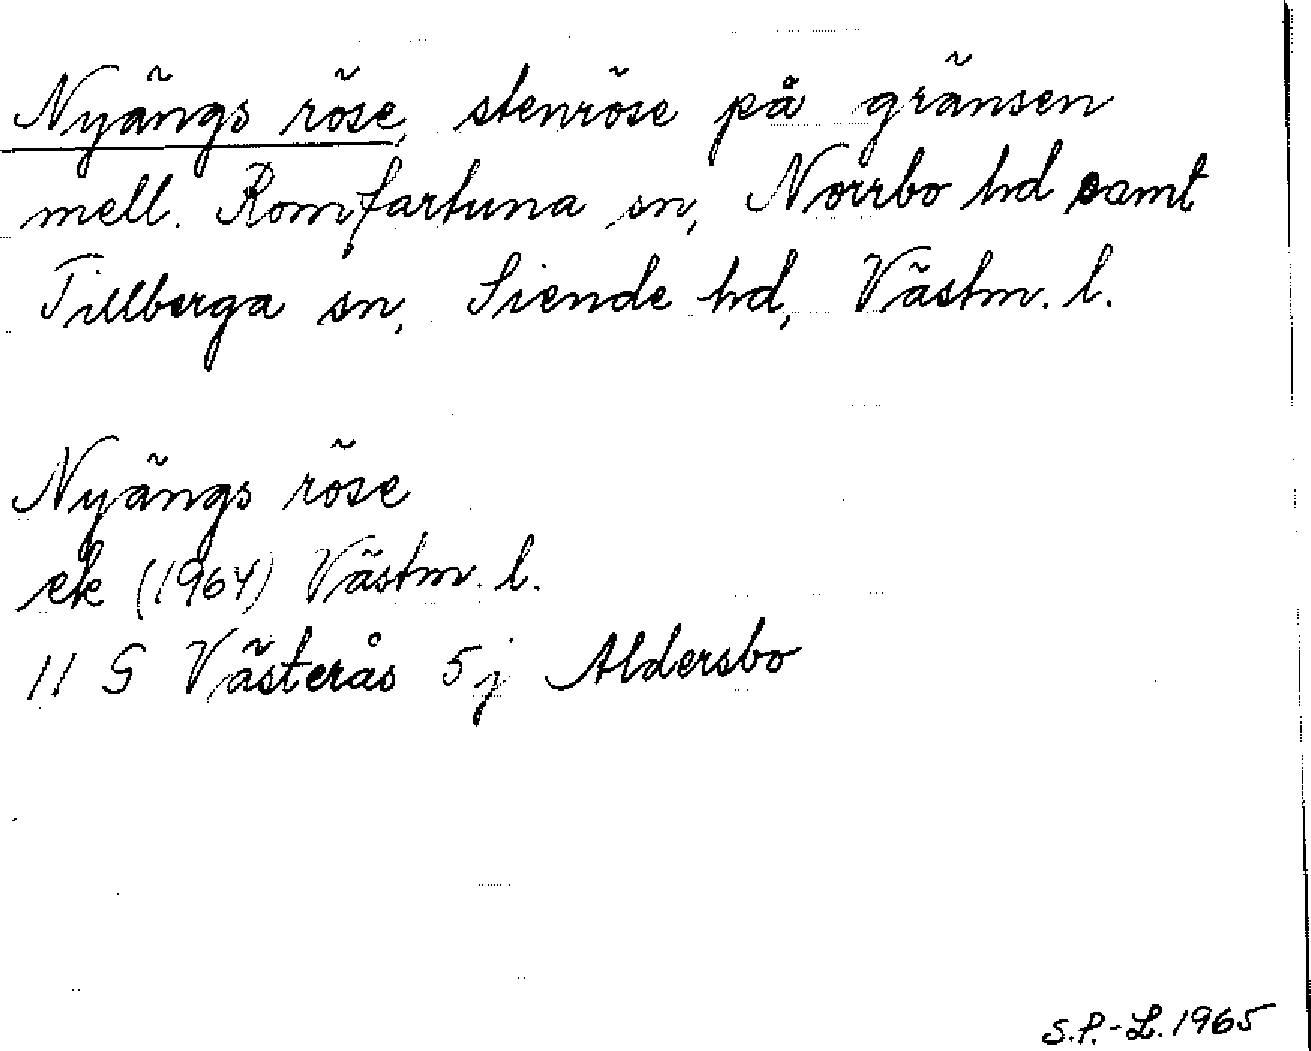 Nyängs röse, stenröse på gränsen
mell. Romfartuna sn, Norrbo hd samt
Tillberga sn, Siende hd, Västm. l.
Nyängs röse
ek (1964) Västm. l.
11 G Västerås 5j Aldersbo
S.P.-L. 1965